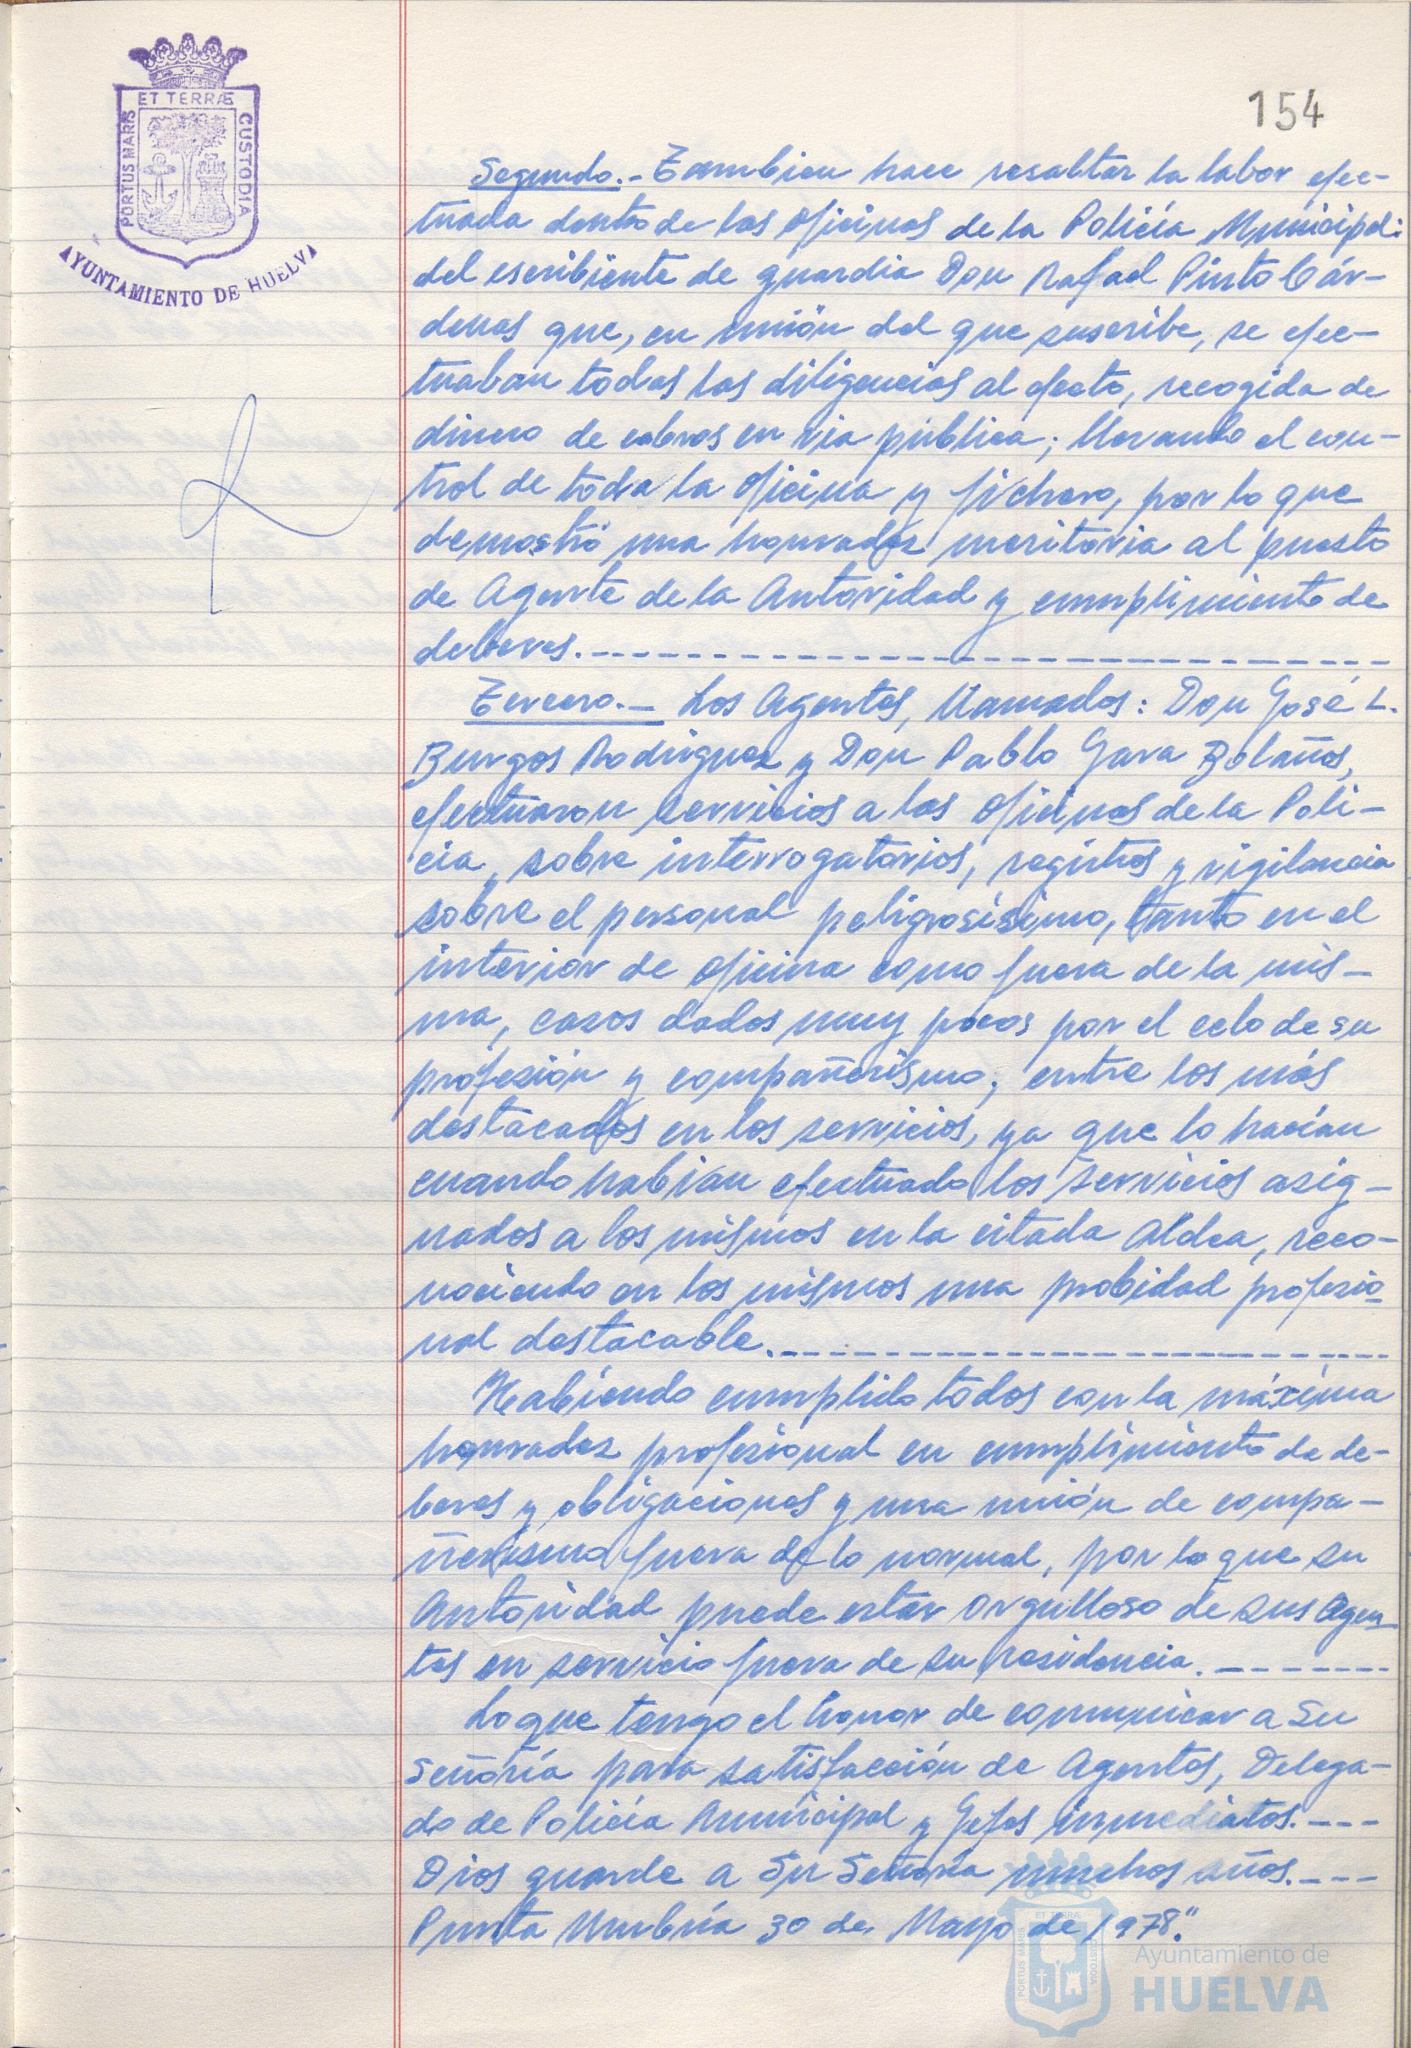 ET TERRÆ
PORTUS MARIS
CUSTODIA
AYUNTAMIENTO DE HUELVA
154
Segundo.- Tambien hace resaltar la labor efec-
tuada dentro de las oficinas de la Policía Municipal:
del escribiente de guardia Don Rafael Pinto Cár-
denas que, en unión del que suscribe, se efec-
tuaban todas las diligencias al efecto, recogida de
dinero de cobros en via pública; llevando el con-
trol de toda la oficina y fichero, por lo que
demostró una honradez meritoria al puesto
de Agente de la Autoridad y cumplimiento de
deberes.
Tercero.- Los Agentes, llamados: Don José L.
Burgos Rodriguez y Don Pablo Gava Bolaños,
efectuaron servicios a las oficinas de la Poli-
cia, sobre interrogatorios, registros y vigilancia
sobre el personal peligrosísimo, tanto en el
interior de oficina como fuera de la mis-
ma, casos dados muy pocos por el celo de su
profesión y compañerismo, entre los más
destacados en los servicios, ya que lo hacían
cuando habian efectuado los servicios asig-
nados a los mismos en la citada Aldea, reco-
nociendo en los mismos una probidad profesio-
nal destacable.
Habiendo cumplido todos con la máxima
honradez profesional en cumplimiento de de-
beres y obligaciones y una unión de compa-
ñerismo fuera de lo normal, por lo que su
Autoridad puede estar orgulloso de sus Agen-
tes en servicio fuera de su residencia.
Lo que tengo el honor de comunicar a Su
Señoría para satisfacción de Agentes, Delega-
do de Policía Municipal y Gefes inmediatos.
Dios guarde a Su Señoría muchos años.
Punta Umbría 30 de Mayo de 1978."
Ayuntamiento de
HUELVA